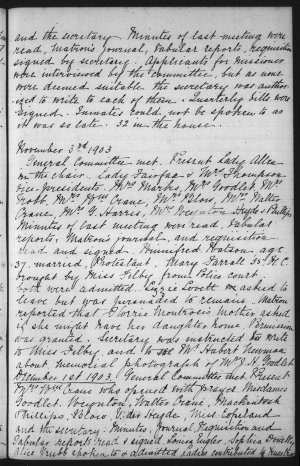 and the secretary Minutes of last meeting were
read, Matron's journal, tabular reports, requisition
signed by secretary. Applicants for missioner
were interviewed by the committee, but as none
were deemed suitable the secretary was author-
ised to write to each of them. Quarterly bills were
signed. Inmates could not be spoken to as
it was so late. 32 in the house.
November 3rd 1903
General Committee met. Present Lady Allen
in the chair. Lady Fairfax & Mrs Thompson
vice-presidents. Mrs Marks, Mrs Goodlet Mrs
Robb, Mrs Wm Crane, Mrs Blow, Mrs Walter
Crane, Mrs G. Harris, Mrs Weynton Miss Phillips,
Minutes of last meeting were read, tabular
reports, Matron's journal, and requisition
read and signed. Winnifred Watson, age
37, married, Protestant. Mary Farrall 35 R.C.
brought by Miss Selby, from Police court,
both were admitted. Lizzie Lovett asked to
leave but was persuaded to remain. Matron
reported that Florrie Montrose's mother asked
if she might have her daughter home. Permission
was granted. Secretary was instructed to write
to Miss Selby, and to Mr Hubert Newman
about memorial photograph of Mr J. H. Goodlet
December 1st 1903. General Committee met. Present
Mrs Wm Crane who opened with prayer. Mesdames
Goodlet, Weynton, Walter Crane, Mackintosh
Phillips, Blow, V. der Heyde, Miss Copeland
and the secretary. Minutes, Journal, Requisition and
Tabular reports read & signed. Louisa Engler, Sophia
Alice Grubb spoken to & admitted